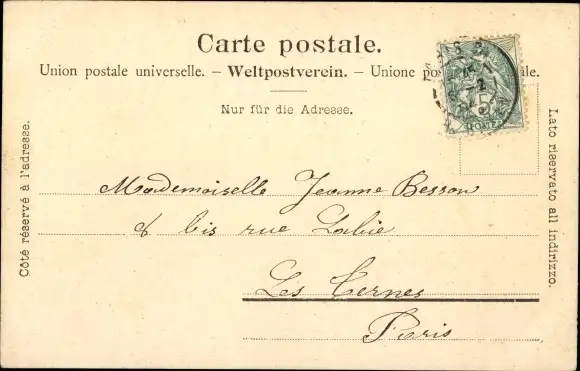 Carte postale.
Union postale universelle. – Weltpostverein. – Unione po ale.
Nur für die Adresse.
Côté réservé à l'adresse.
Lato riservato all indirizzo.
5
POSTES
Mademoiselle Jeanne Besson
bis rue Labie
Les Ternes
Paris